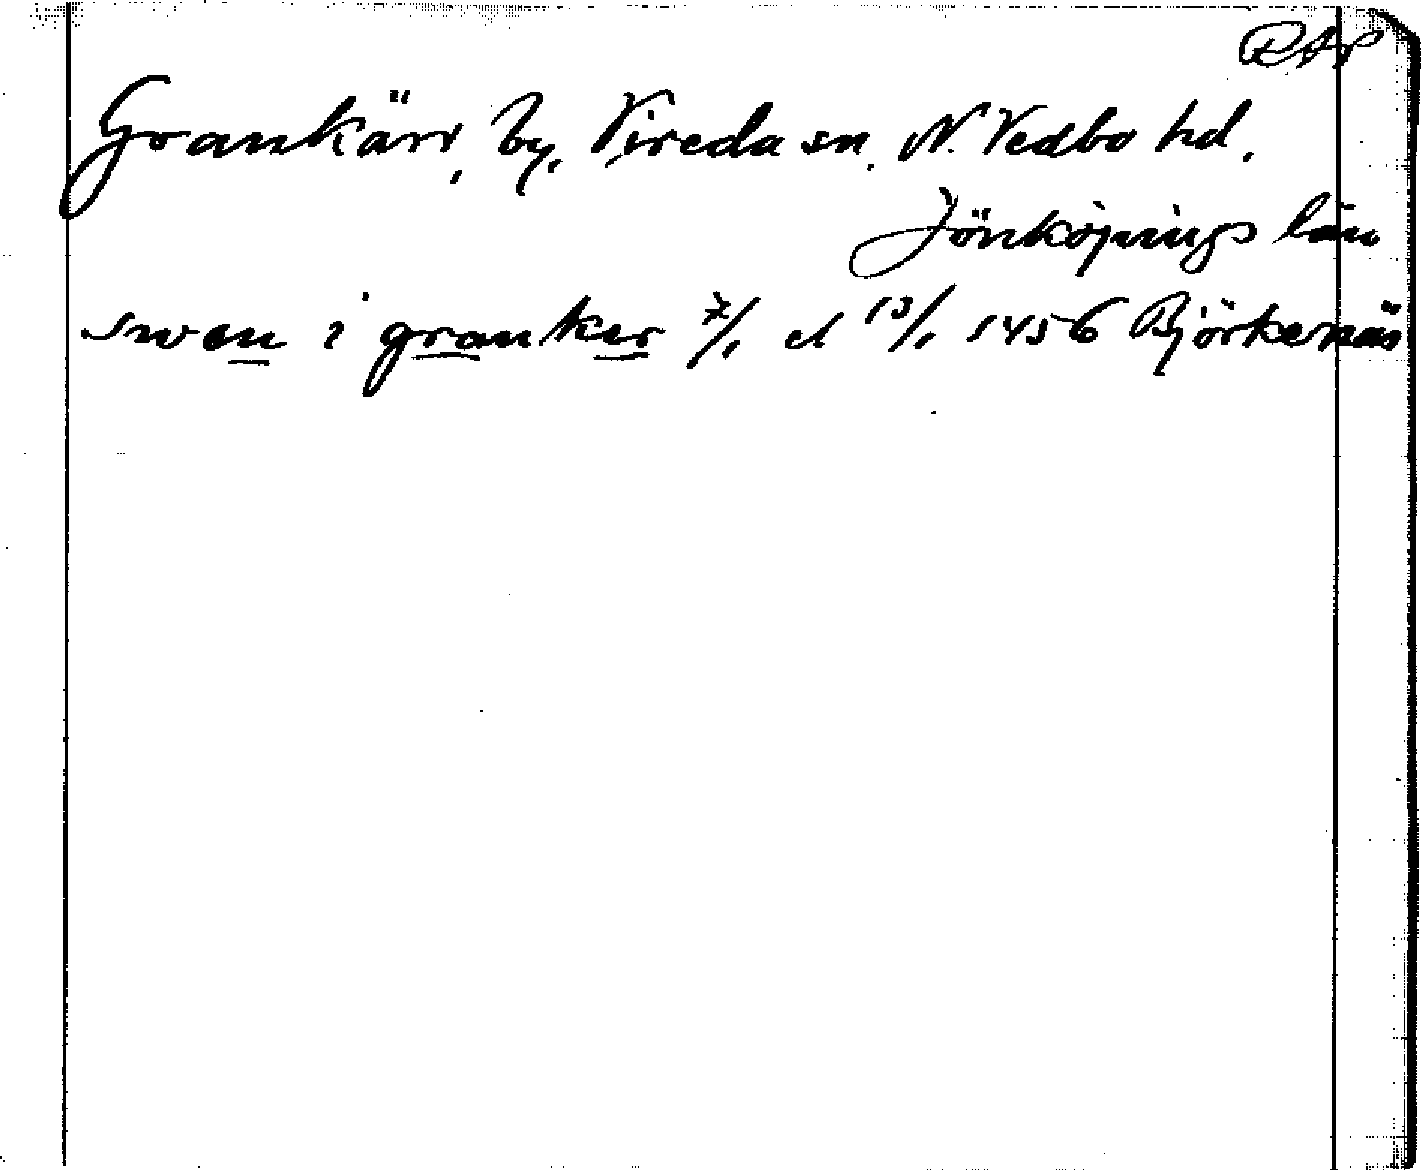 RAP
Grankärr, by, Vireda sn. N. Vedbo hd.
Jönköpings län
swen i granker 7/1 el 13/1 1456 Björkenäs